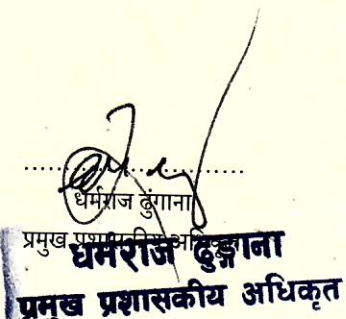 धर्मराज ढुंगाना
प्रमुख प्रशासकीय अधिकृत
धर्मराज ढुङ्गाना
प्रमुख प्रशासकीय अधिकृत